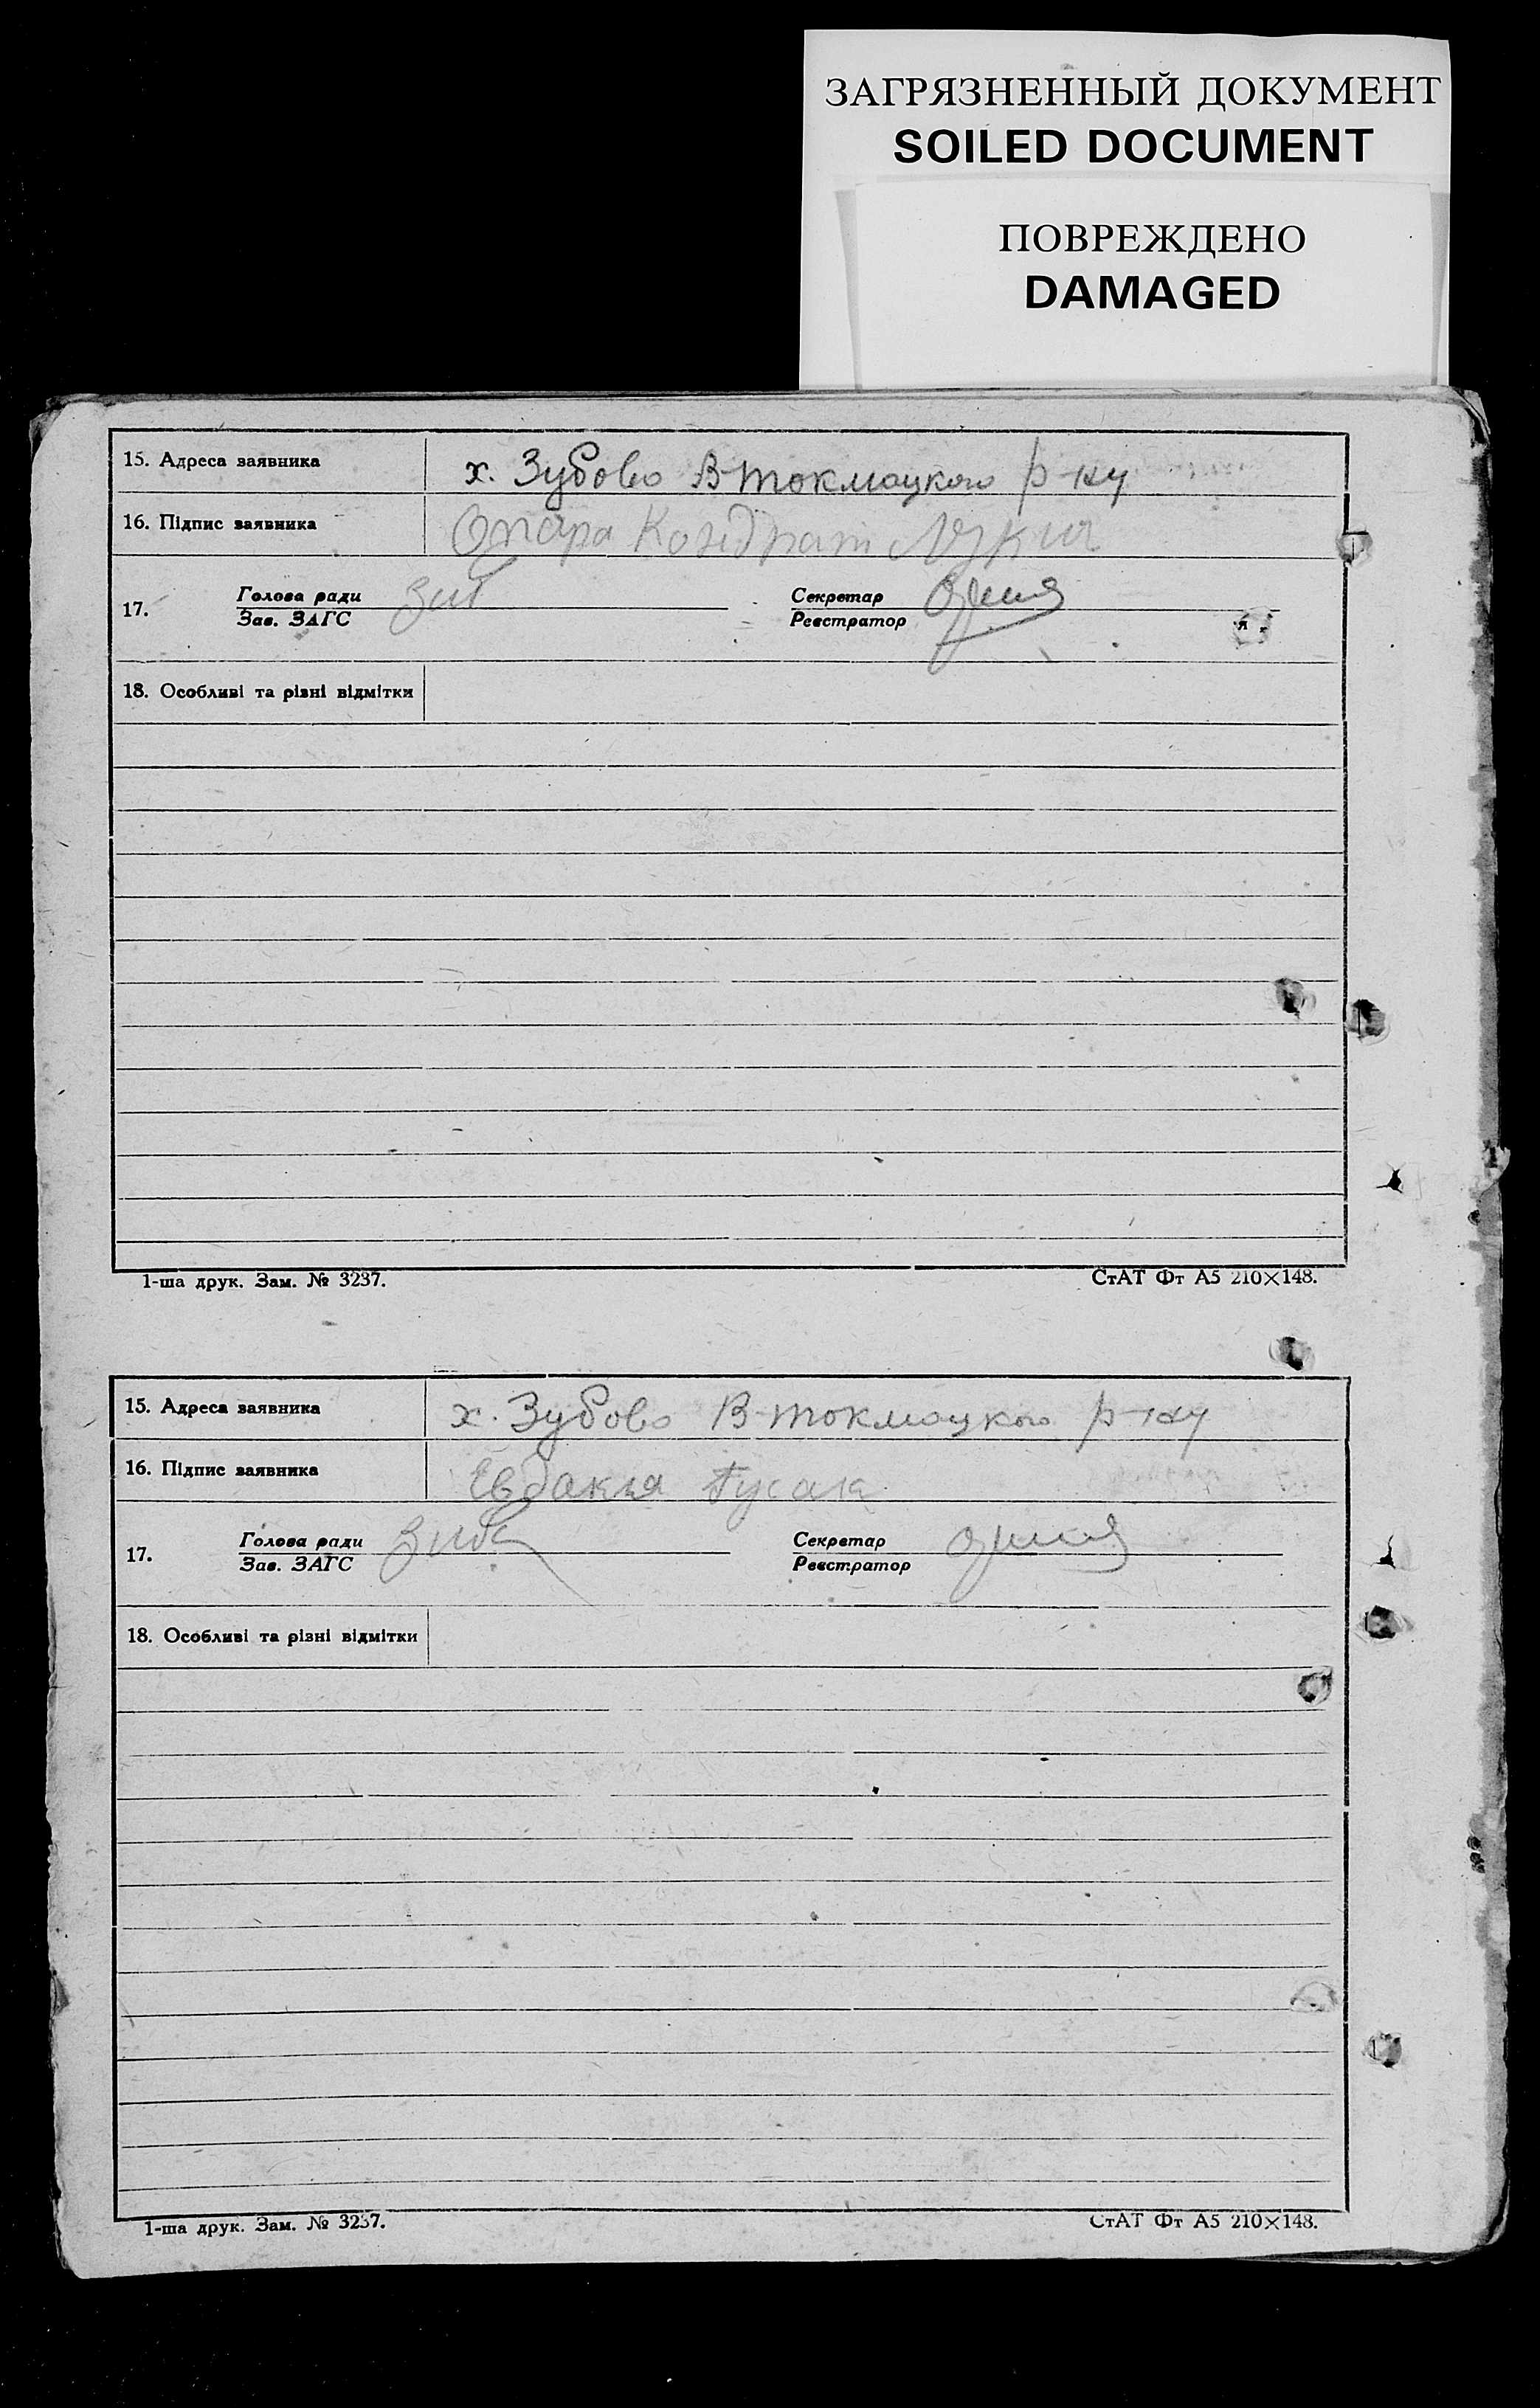 ЗАГРЯЗНЕННЫЙ ДОКУМЕНТ
SOILED DOCUMENT
ПОВРЕЖДЕНО
DAMAGED
15. Адреса заявника х. Зубово В-токмацкого р-ну
16. Підпис заявника Опара Кондрат Лукич
17. Голова ради Секретар
Зав. ЗАГС Реєстратор
18. Особливі та різні відмітки
1-ша друк. Зам. № 3237. СтАТ Фт А5 210×148.
15. Адреса заявника х. Зубово В-токмацкого р-ну
16. Підпис заявника Евдакия Гусак
17. Голова ради Секретар
Зав. ЗАГС Реєстратор
18. Особливі та різні відмітки
1-ша друк. Зам. № 3237. СтАТ Фт А5 210×148.